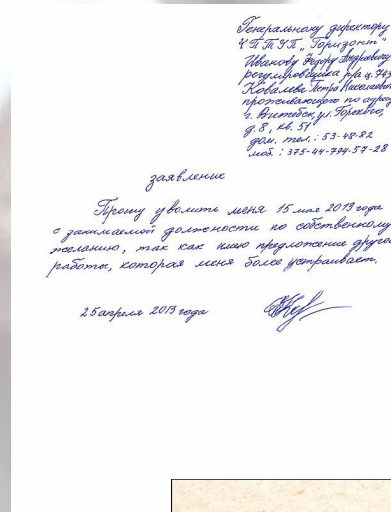 Генеральному директору
ЧПТУП „Горизонт"
Иванову Федору Андреевичу
регулировщика р/а ц. 743
Ковалева Петра Николаевича
проживающего по адресу
г. Витебск, ул. Горького,
д. 8, кв. 51
дом. тел.: 53-48-82
моб.: 375-44-794-57-28
заявление
Прошу уволить меня 15 мая 2013 года
с занимаемой должности по собственному
желанию, так как имею предложение другой
работы, которая меня более устраивает.
25 апреля 2013 года